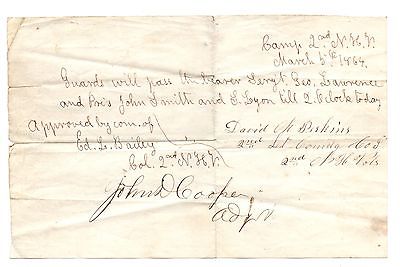 Camp 2nd N.H.V.
March 5th 1864.
Guards will pass the bearer Sergt. Geo. Lawrence
and Pvts John Smith and S. Lyon till 2. O'clock today
Approved by com. of
Ed. L. Bailey
Col. 2nd N.H.V.
David A Perkins
2nd Lt Comdg Co I
2nd N H Vols
John D Cooper
Adjt